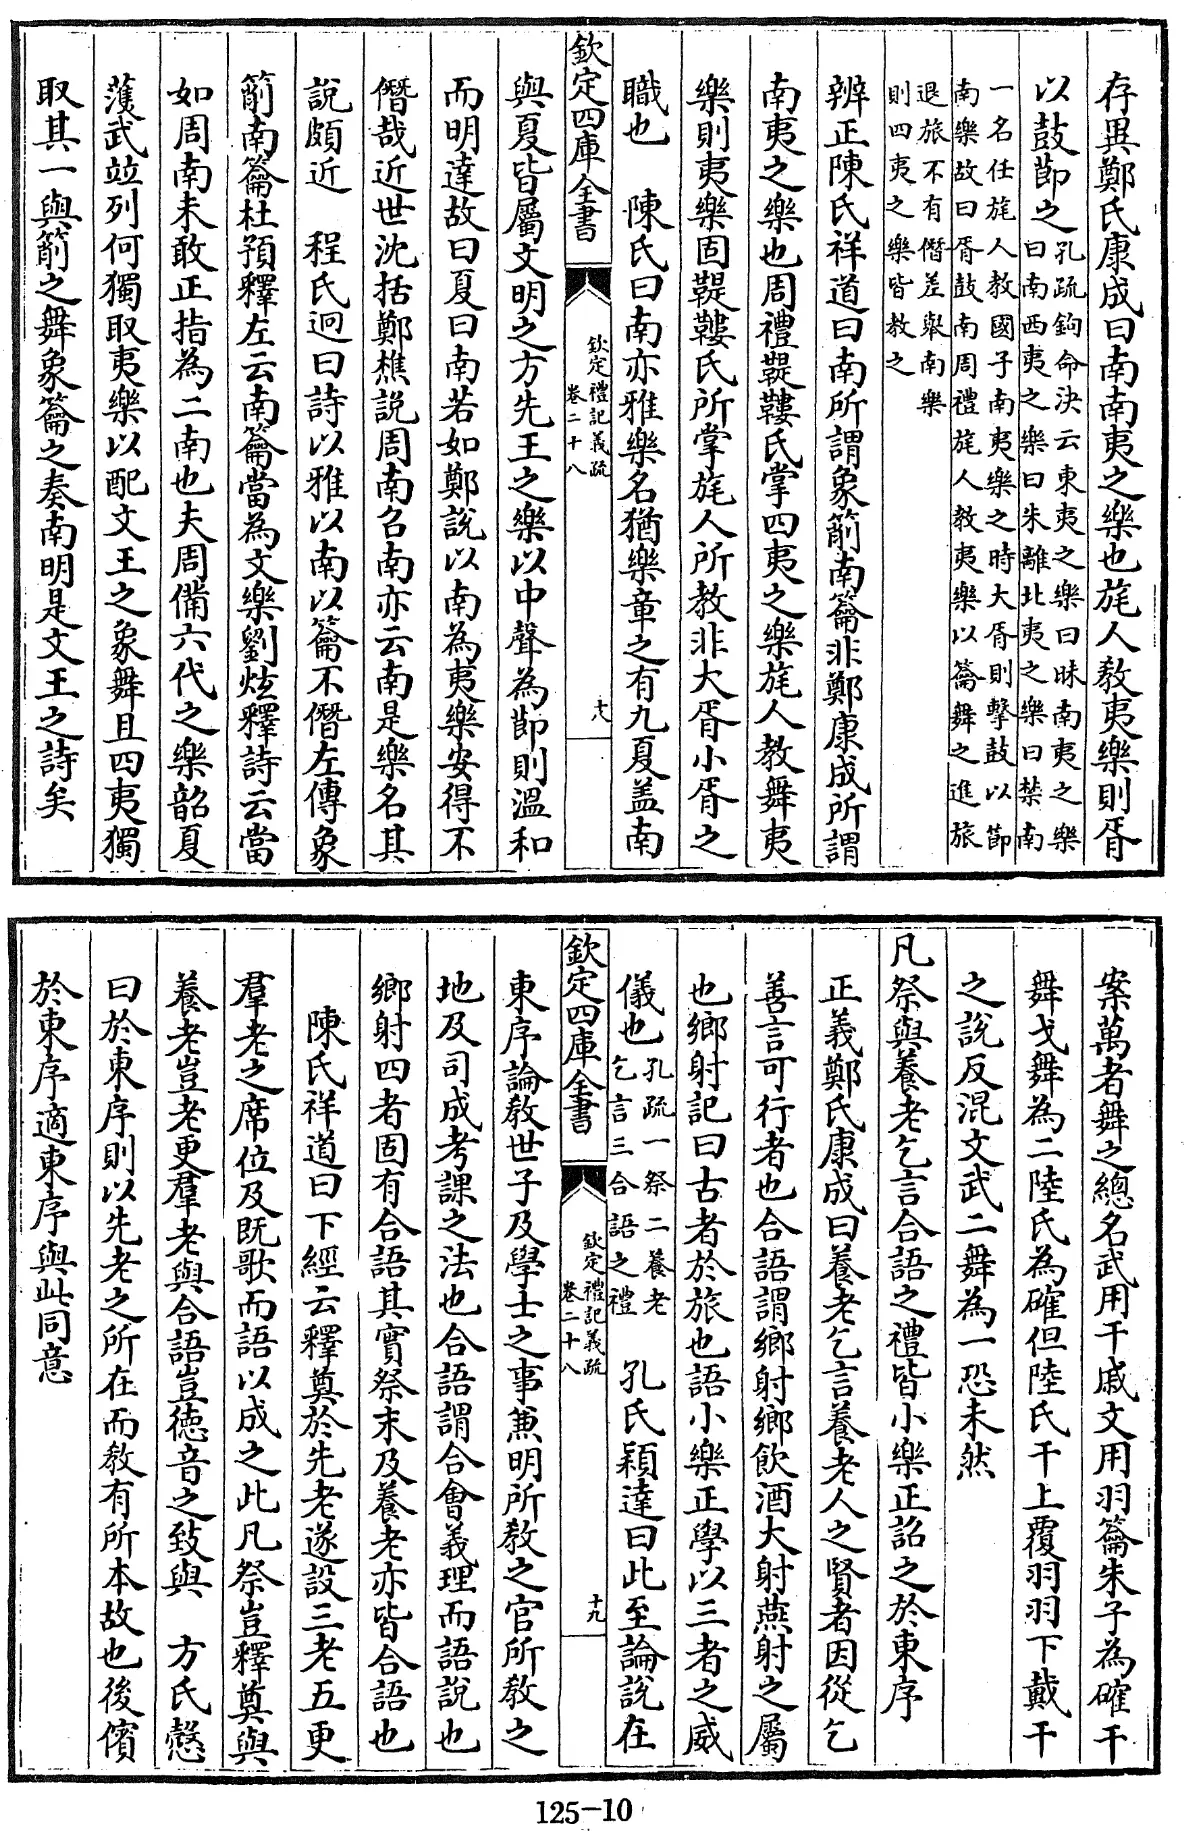 存異鄭氏康成曰南南夷之樂也旄人教夷樂則胥
以鼓節之
孔疏鉤命決云東夷之樂曰昧南夷之樂
曰南西夷之樂曰朱離北夷之樂曰禁南
一名任旄人教國子南夷樂之時大胥則擊鼓以節
南樂故曰胥鼓南周禮旄人教夷樂以籥舞之進旅
退旅不有僭差舉南樂
則四夷之樂皆教之
辨正陳氏祥道曰南所謂象箾南籥非鄭康成所謂
南夷之樂也周禮鞮鞻氏掌四夷之樂旄人教舞夷
樂則夷樂固鞮鞻氏所掌旄人所教非大胥小胥之
職也　陳氏曰南亦雅樂名猶樂章之有九夏盖南
欽定四庫全書
欽定禮記義疏
卷二十八
十八
與夏皆屬文明之方先王之樂以中聲為節則溫和
而明達故曰夏曰南若如鄭說以南為夷樂安得不
僭哉近世沈括鄭樵説周南召南亦云南是樂名其
説頗近　程氏迥曰詩以雅以南以籥不僭左傳象
箾南籥杜預釋左云南籥當為文樂劉炫釋詩云當
如周南未敢正指為二南也夫周備六代之樂韶夏
濩武竝列何獨取夷樂以配文王之象舞且四夷獨
取其一與箾之舞象籥之奏南明是文王之詩矣
案萬者舞之總名武用干戚文用羽籥朱子為確干
舞戈舞為二陸氏為確但陸氏干上覆羽羽下戴干
之說反混文武二舞為一恐未然
凡祭與養老乞言合語之禮皆小樂正詔之於東序
正義鄭氏康成曰養老乞言養老人之賢者因從乞
善言可行者也合語謂鄉射鄉飲酒大射燕射之屬
也鄉射記曰古者於旅也語小樂正學以三者之威
儀也
孔疏一祭二養老
乞言三合語之禮
孔氏穎達曰此至論説在
欽定四庫全書
欽定禮記義疏
卷二十八
十九
東序論教世子及學士之事兼明所教之官所教之
地及司成考課之法也合語謂合會義理而語説也
鄉射四者固有合語其實祭末及養老亦皆合語也
陳氏祥道曰下經云釋奠於先老遂設三老五更
羣老之席位及既歌而語以成之此凡祭豈釋奠與
養老豈老更羣老與合語豈德音之致與　方氏慤
曰於東序則以先老之所在而教有所本故也後儐
於東序適東序與此同意
125-10